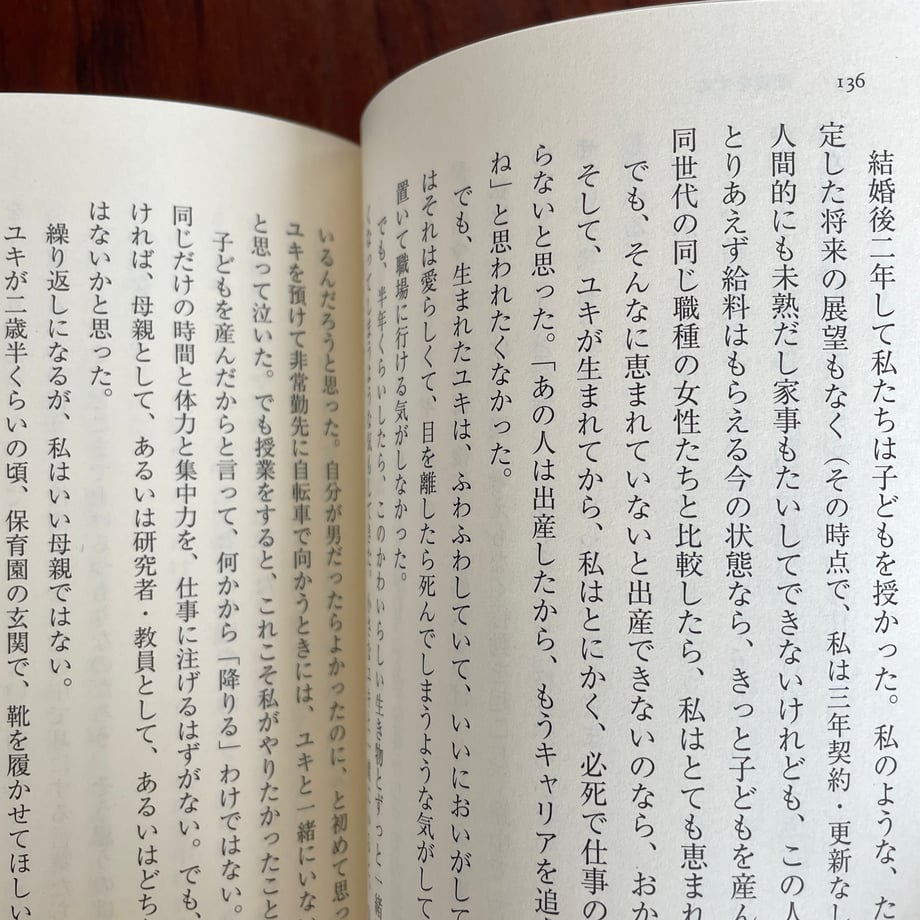 136
結婚後二年して私たちは子どもを授かった。私のような、た
定した将来の展望もなく（その時点で、私は三年契約・更新なし
人間的にも未熟だし家事もたいしてできないけれども、この人
とりあえず給料はもらえる今の状態なら、きっと子どもを産ん
同世代の同じ職種の女性たちと比較したら、私はとても恵まれ
でも、そんなに恵まれていないと出産できないのなら、おか
そして、ユキが生まれてから、私はとにかく、必死で仕事の
らないと思った。「あの人は出産したから、もうキャリアを追
ね」と思われたくなかった。
でも、生まれたユキは、ふわふわしていて、いいにおいがして
はそれは愛らしくて、目を離したら死んでしまうような気がして
置いて職場に行ける気がしなかった。
でも、半年くらいしたら、このかわいらしい生き物とずっと一緒
くなってしまうような気もしてきた。
いるんだろうと思った。自分が男だったらよかったのに、と初めて思っ
ユキを預けて非常勤先に自転車で向かうときには、ユキと一緒にいな
と思って泣いた。でも授業をすると、これこそ私がやりたかったこと
子どもを産んだからと言って、何かから「降りる」わけではない。
同じだけの時間と体力と集中力を、仕事に注げるはずがない。でも、
ければ、母親として、あるいは研究者・教員として、あるいはどち
はないかと思った。
繰り返しになるが、私はいい母親ではない。
ユキが二歳半くらいの頃、保育園の玄関で、靴を履かせてほしい